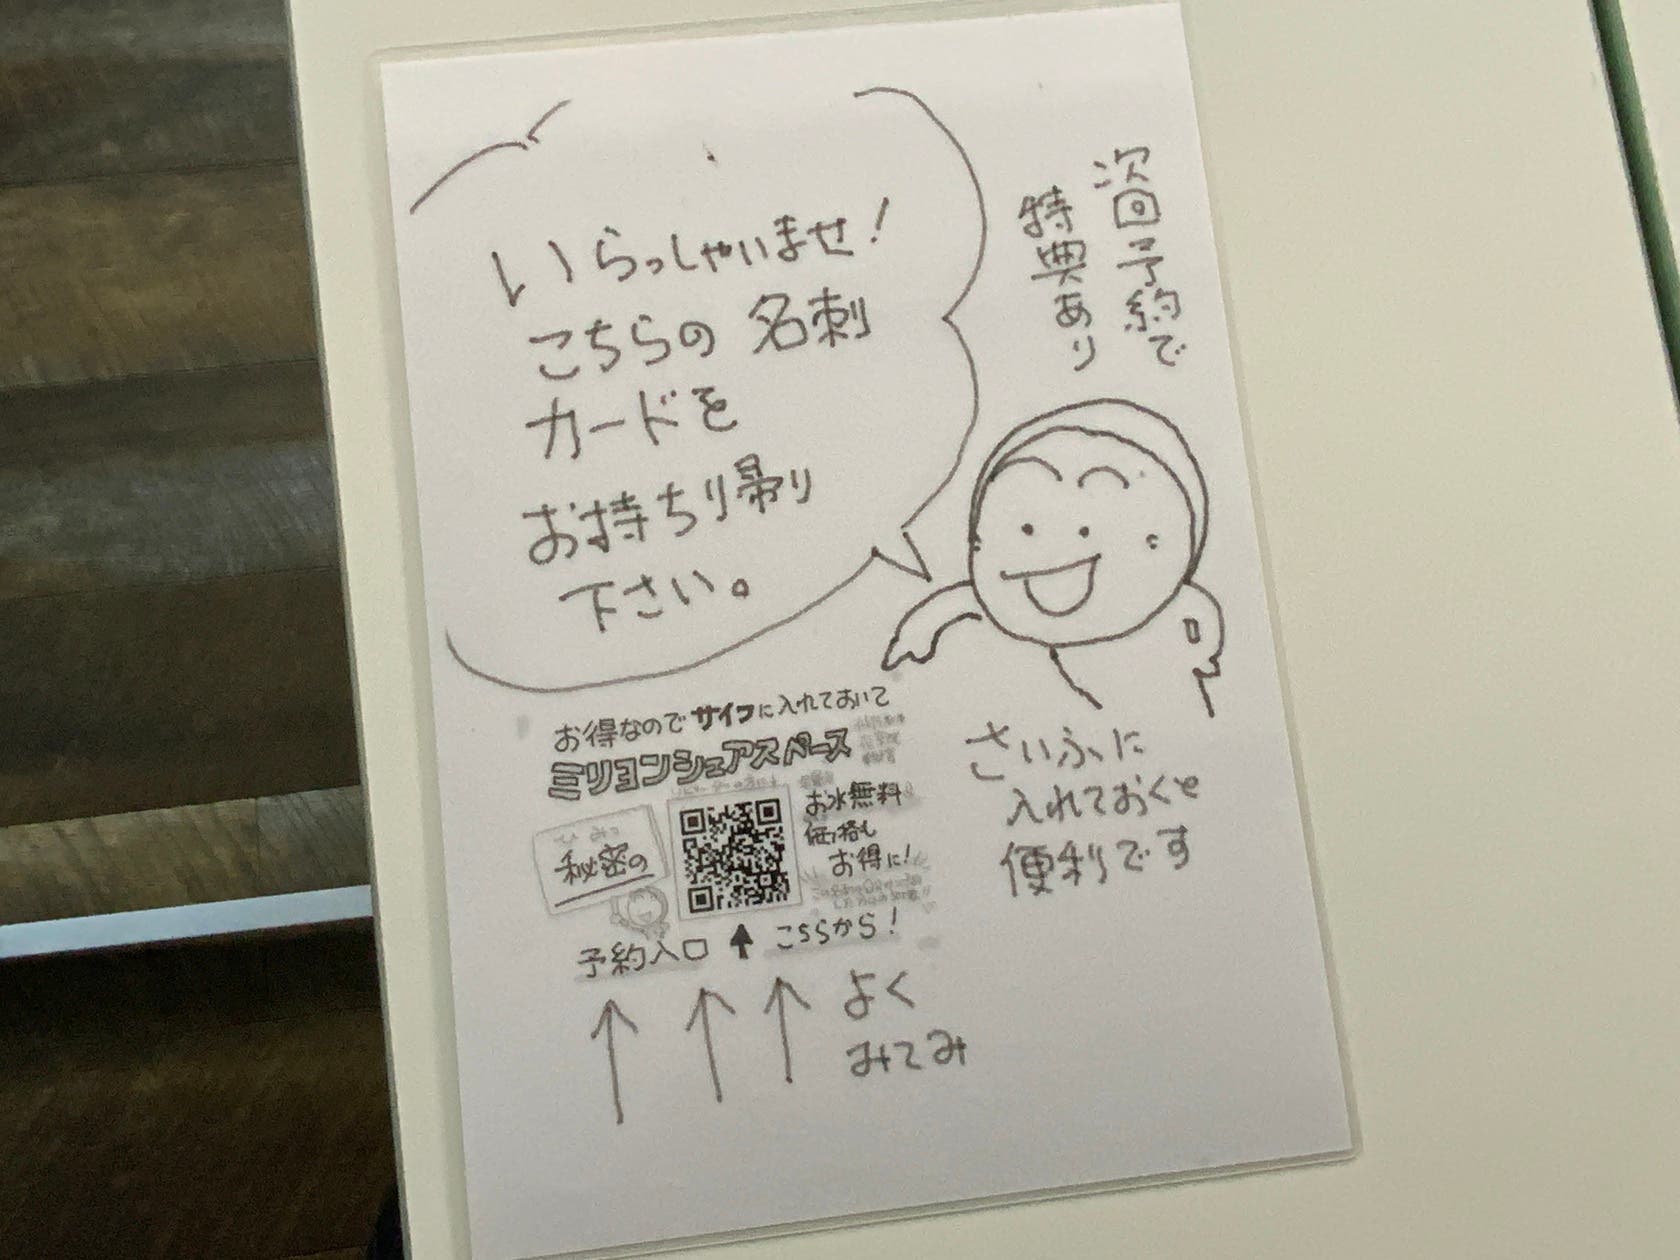 次回予約で
特典あり
いらっしゃいませ!
こちらの名刺
カードを
お持ちり帰り
下さい。
お得なのでサイフに入れておいて
ミリヨンシェアスペース
秘密の
お氷無料
価格も
お得に!
予約入口
こちらから!
さいふに
入れておくと
便利です
よく
みてみ